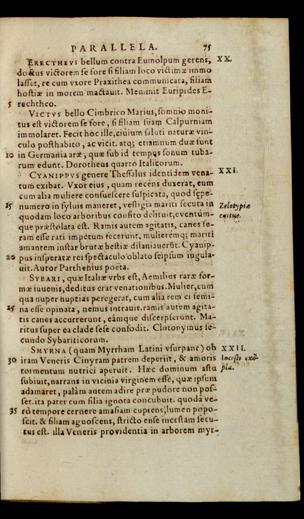 PARALLELA. 75
ERECTHEVS bellum contra Eumolpum gerens, XX.
doctus victorem se fore si filiam loco victimæ immo
lasset, re cum vxore Praxithea communicata, filiam
hostiæ in morem mactauit. Meminit Euripides E-
5 rechtheo.
VICTVS bello Cimbrico Marius, somnio moni-
tus est victorem se fore, si filiam suam Calpurniam
immolaret. Fecit hoc ille, ciuium saluti naturæ vin-
culo posthabito, ac vicit. atq; etiamnum duæ sunt
in Germania aræ, quæ sub id tempus sonum tuba-
rum edunt. Dorotheus quarto Italicorum.
CYANIPPVS genere Thessalus identidem vena- XXI.
tum exibat. Vxor eius, quam recens duxerat, eum
cum alia muliere consuescere suspicata, quod sæpe
15 numero in syluis maneret, vestigia mariti secuta in Zelotypiæ
quodam loco arboribus consito delituit, euentúm- exitus.
que præstolata est. Ramis autem agitatis, canes fe-
ram esse rati impetum fecerunt, mulieremq; mariti
amantem instar brutæ bestiæ dilaniauerūt. Cyanip-
pus insperatæ rei spectaculo oblato seipsum iugula-
uit. Autor Parthenius poeta.
SYBARI, quæ Italiæ vrbs est, Aemilius raræ for-
mæ iuuenis, deditus erat venationibus. Mulier, cum
qua nuper nuptias peregerat, cum alia rem ei femi-
na esse opinata, nemus intrauit. ramis autem agita-
tis canes accurrerunt, eámque discerpserunt. Ma-
ritus super ea clade sese confodit. Clotonymus se-
cundo Sybariticorum.
SMYRNA (quam Myrrham Latini vsurpant) ob XXII.
30 iram Veneris Cinyram patrem deperiit, & amoris Incesti exē-
tormentum nutrici aperuit. Hæc dominum astu pla.
subiuit, narrans in vicinia virginem esse, quæ ipsum
adamaret, palàm autem adire præ pudore non pos-
set. ita pater cum filia ignota concubuit. quodā ve-
35 rò tempore cernere amasiam cupiens, lumen popo-
scit. & filiam agnoscens, stricto ense incestam secu-
tus est. illa Veneris prouidentia in arborem myr-